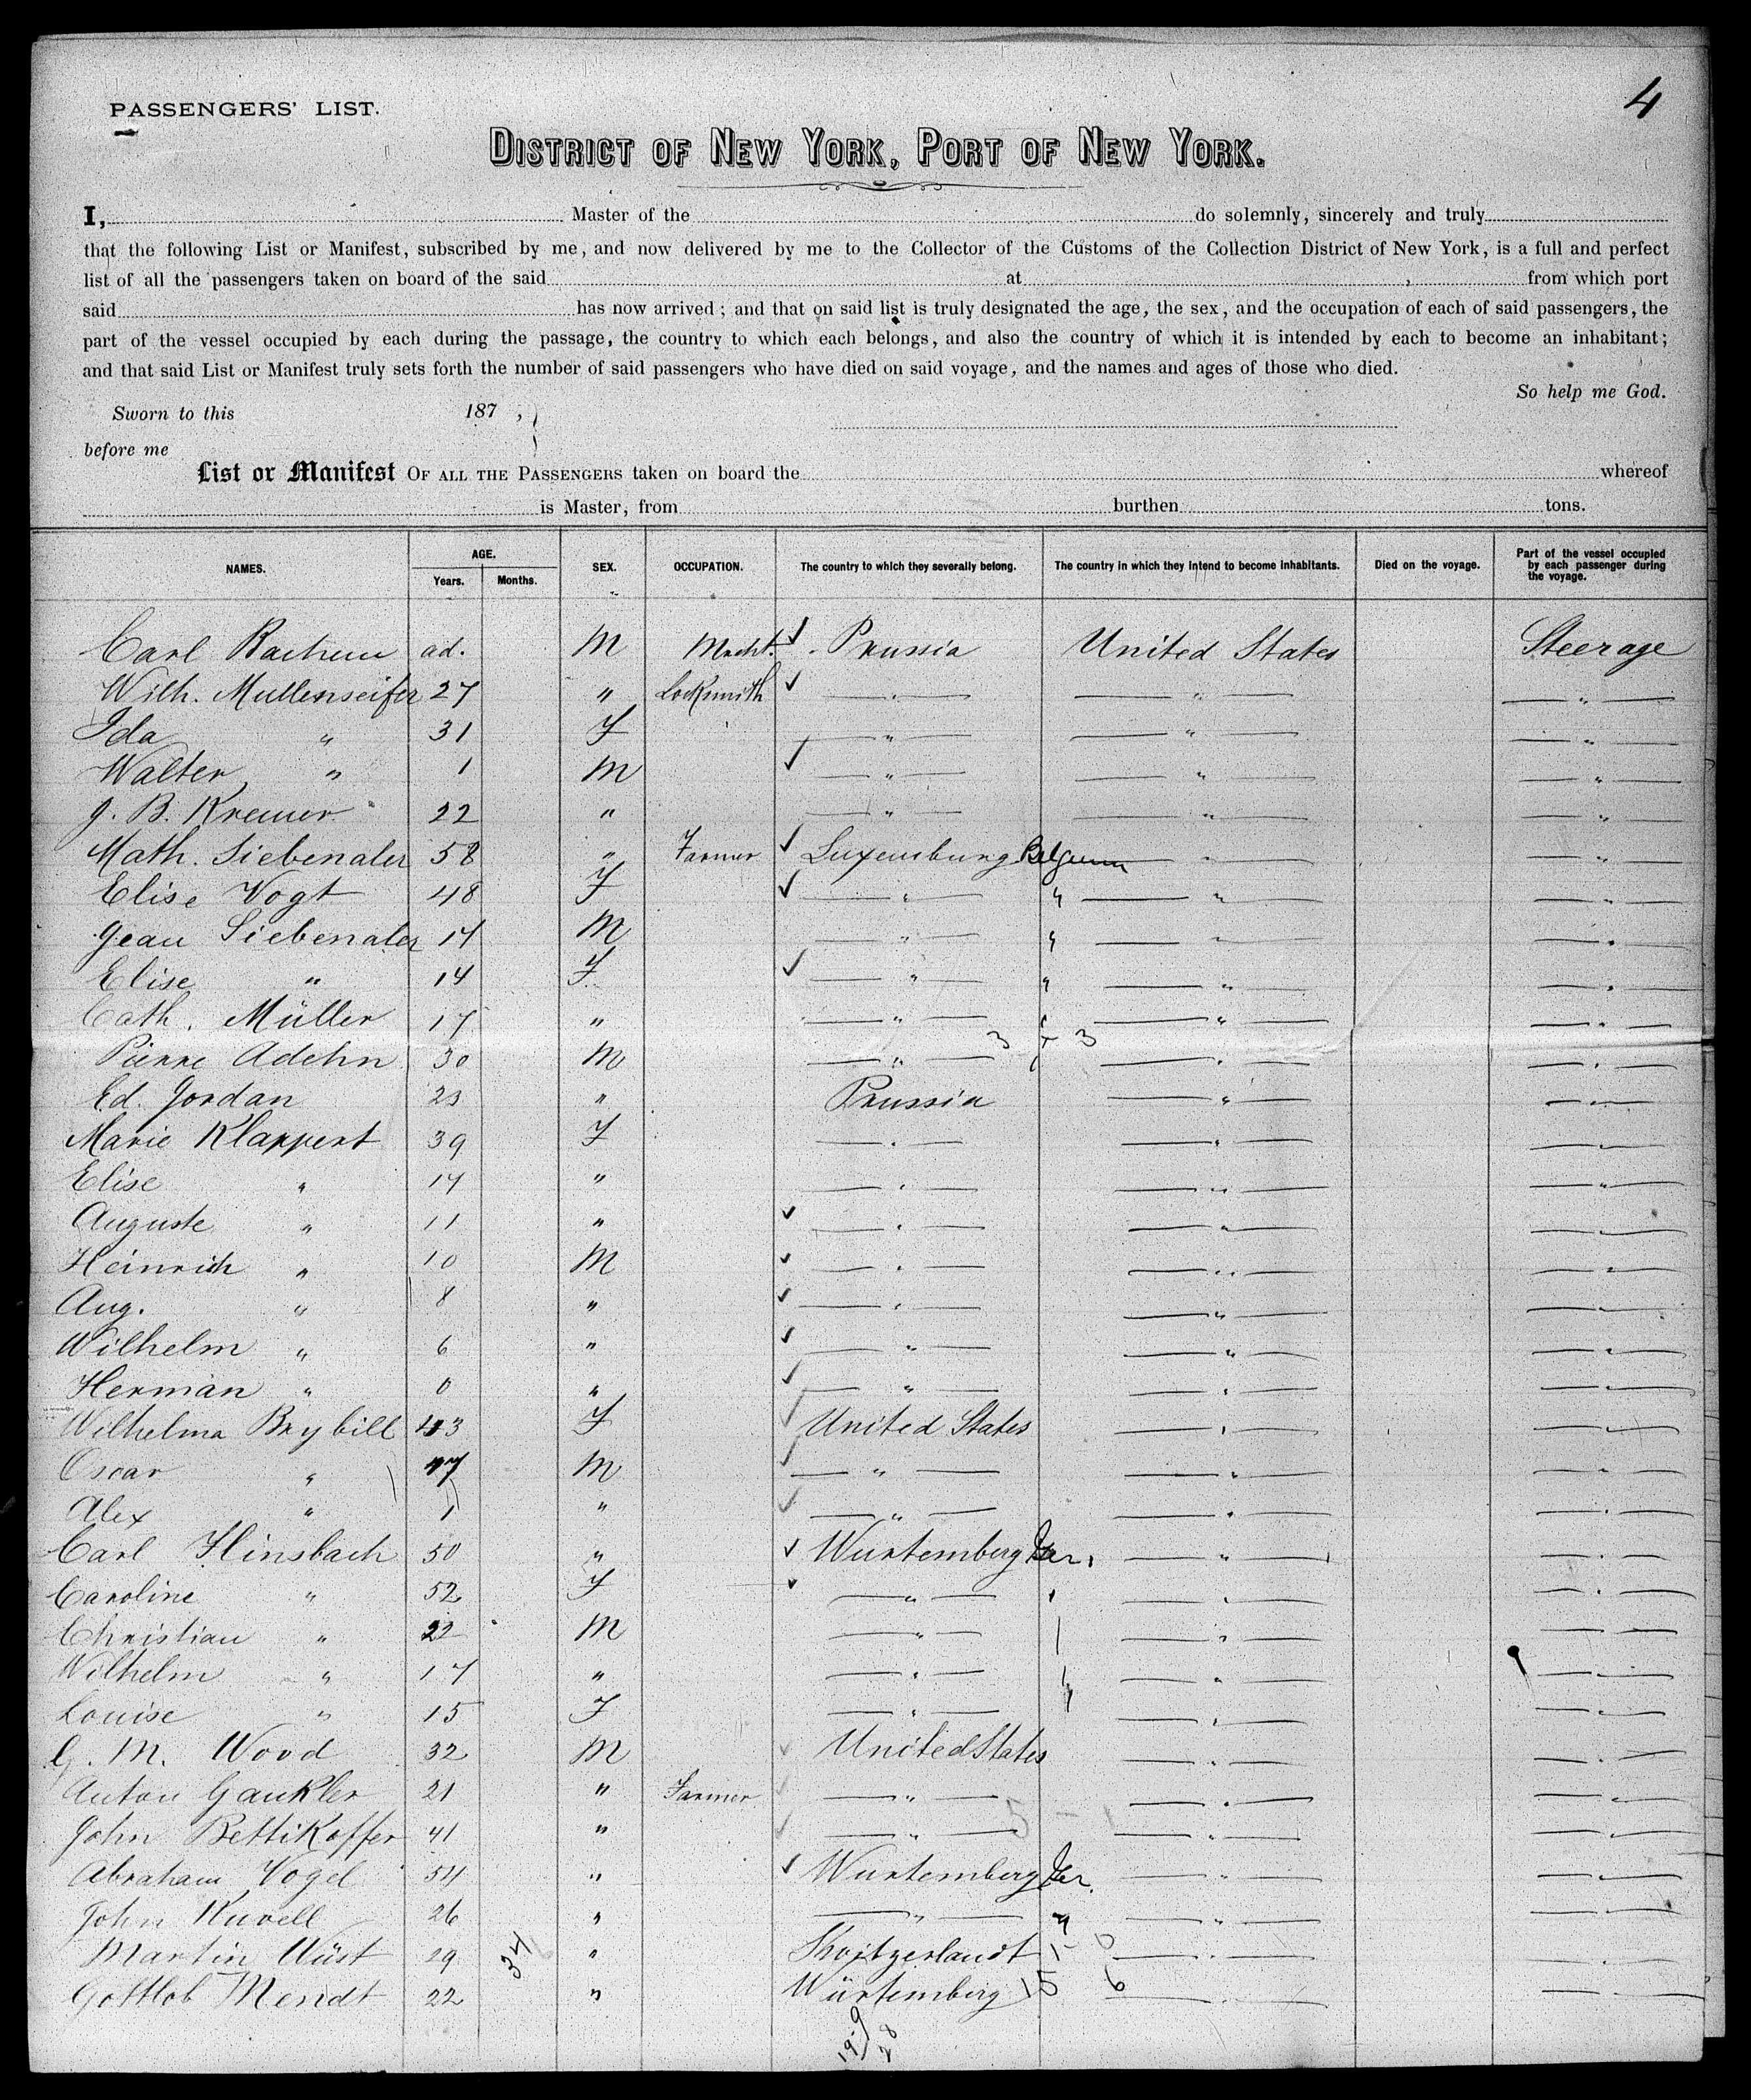 4
PASSENGERS' LIST.
DISTRICT OF NEW YORK, PORT OF NEW YORK.
I, Master of the do solemnly, sincerely and truly
that the following List or Manifest, subscribed by me, and now delivered by me to the Collector of the Customs of the Collection District of New York, is a full and perfect
list of all the passengers taken on board of the said at , from which port
said has now arrived; and that on said list is truly designated the age, the sex, and the occupation of each of said passengers, the
part of the vessel occupied by each during the passage, the country to which each belongs, and also the country of which it is intended by each to become an inhabitant;
and that said List or Manifest truly sets forth the number of said passengers who have died on said voyage, and the names and ages of those who died.
So help me God.
Sworn to this 187 ,
before me
List or Manifest OF ALL THE PASSENGERS taken on board the whereof
is Master, from burthen tons.
NAMES. AGE. Years. Months. SEX. OCCUPATION. The country to which they severally belong. The country in which they intend to become inhabitants. Died on the voyage. Part of the vessel occupied by each passenger during the voyage.
Carl Bachem ad. M Mecht. Prussia United States Steerage
Wilh. Mullenseifer 27 " Locksmith " " "
Ida " 31 F " " "
Walter " 1 M " " "
J. B. Kremer 22 " " " "
Math. Siebenaler 58 " Farmer Luxemburg Belgium " "
Elise Vogt 48 F " " " "
Jean Siebenaler 17 M " " " "
Elise " 14 F " " " "
Cath. Müller 17 " " " " "
Pierre Adehn 30 M " " "
Ed. Jordan 23 " Prussia " "
Marie Klappert 39 F " " "
Elise " 14 " " " "
Auguste " 11 " " " "
Heinrich " 10 M " " "
Aug. " 8 " " " "
Wilhelm " 6 " " " "
Herman " 0 " " " "
Wilhelma Brybill 43 F United States " "
Oscar " 47 M " " "
Alex " 1 " " " "
Carl Hinsbach 50 " Wurtemberg Ger. " "
Caroline " 52 F " " " "
Christian " 22 M " " "
Wilhelm " 17 " " " " "
Louise " 15 F " " " "
G. M. Wood 32 M United States " "
Anton Gaukler 21 " Farmer " " "
John Bettikoffer 41 " " " "
Abraham Vogel 54 " Wurtemberg Ger. " "
John Kuvell 26 " " " " "
Martin Wüst 29 " Switzerlandt " "
Gottlob Mendt 22 " Würtemberg " "
34